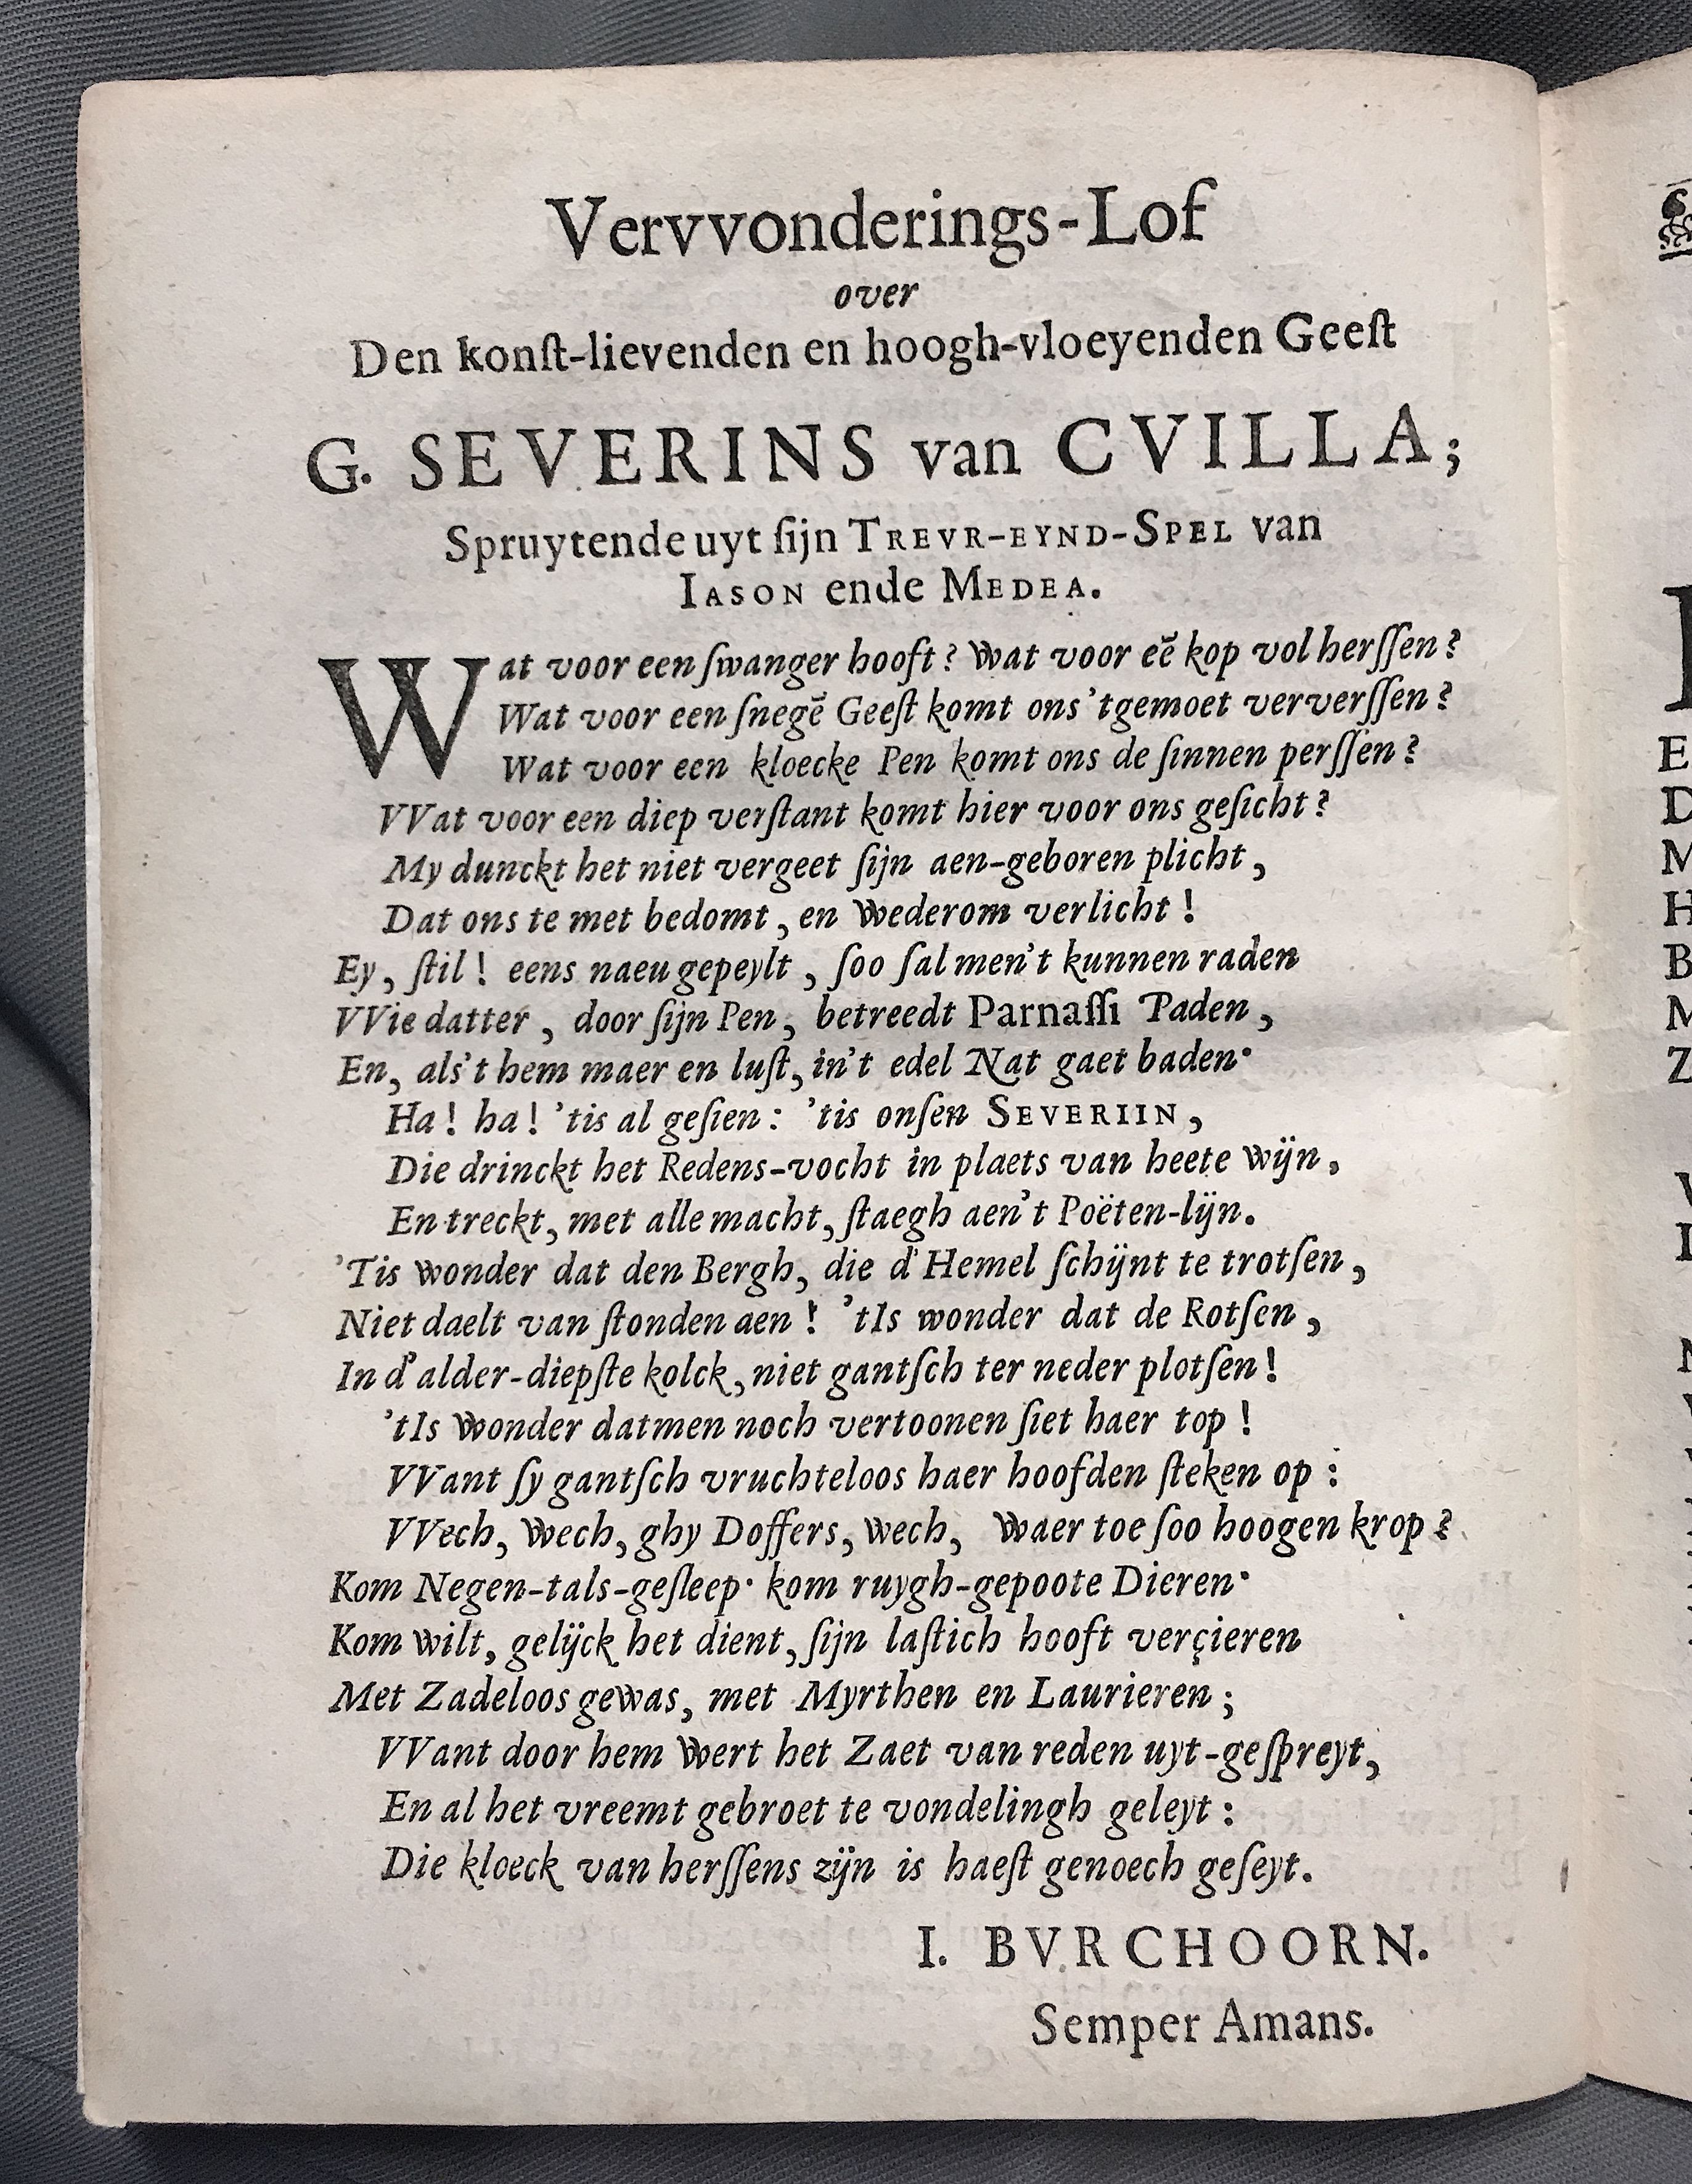 Vervvonderings-Lof
over
Den konſt-lievenden en hoogh-vloeyenden Geeſt
G. SEVERINS van CVILLA;
Spruytende uyt ſijn TREVR-EYND-SPEL van
IASON ende MEDEA.
Wat voor een ſwanger hooft? Wat voor eē kop vol herſſen?
Wat voor een ſnegē Geeſt komt ons 'tgemoet ververſſen?
Wat voor een kloecke Pen komt ons de ſinnen perſſen?
VVat voor een diep verſtant komt hier voor ons geſicht?
My dunckt het niet vergeet ſijn aen-geboren plicht,
Dat ons te met bedomt, en wederom verlicht!
Ey, ſtil! eens naeu gepeylt, ſoo ſal men't kunnen raden
VVie datter, door ſijn Pen, betreedt Parnaſſi Paden,
En, als't hem maer en luſt, in't edel Nat gaet baden·
Ha! ha! 'tis al geſien: 'tis onſen SEVERIIN,
Die drinckt het Redens-vocht in plaets van heete wijn,
En treckt, met alle macht, ſtaegh aen't Poëten-lijn.
'Tis wonder dat den Bergh, die d'Hemel ſchijnt te trotſen,
Niet daelt van ſtonden aen! 'tIs wonder dat de Rotſen,
In d'alder-diepſte kolck, niet gantſch ter neder plotſen!
'tIs wonder datmen noch vertoonen ſiet haer top!
VVant ſy gantſch vruchteloos haer hoofden ſteken op:
VVech, wech, ghy Doffers, wech, waer toe ſoo hoogen krop?
Kom Negen-tals-geſleep· kom ruygh-gepoote Dieren·
Kom wilt, gelijck het dient, ſijn laſtich hooft verçieren
Met Zadeloos gewas, met Myrthen en Laurieren;
VVant door hem wert het Zaet van reden uyt-geſpreyt,
En al het vreemt gebroet te vondelingh geleyt:
Die kloeck van herſſens zijn is haeſt genoech geſeyt.
I. BVRCHOORN.
Semper Amans.
E
D
M
H
B
M
Z